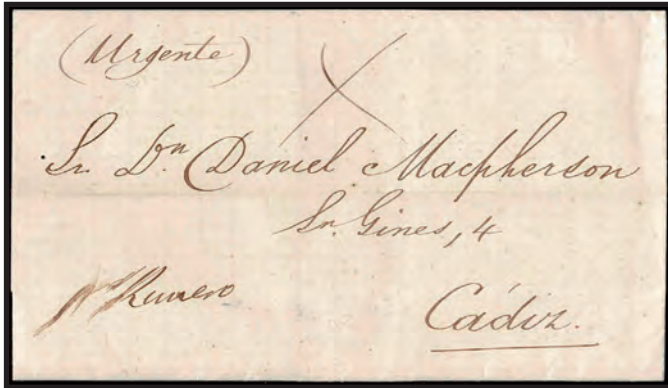 (Urgente)
Sr. Dn. Daniel Macpherson
Sn. Gines, 4
Cádiz.